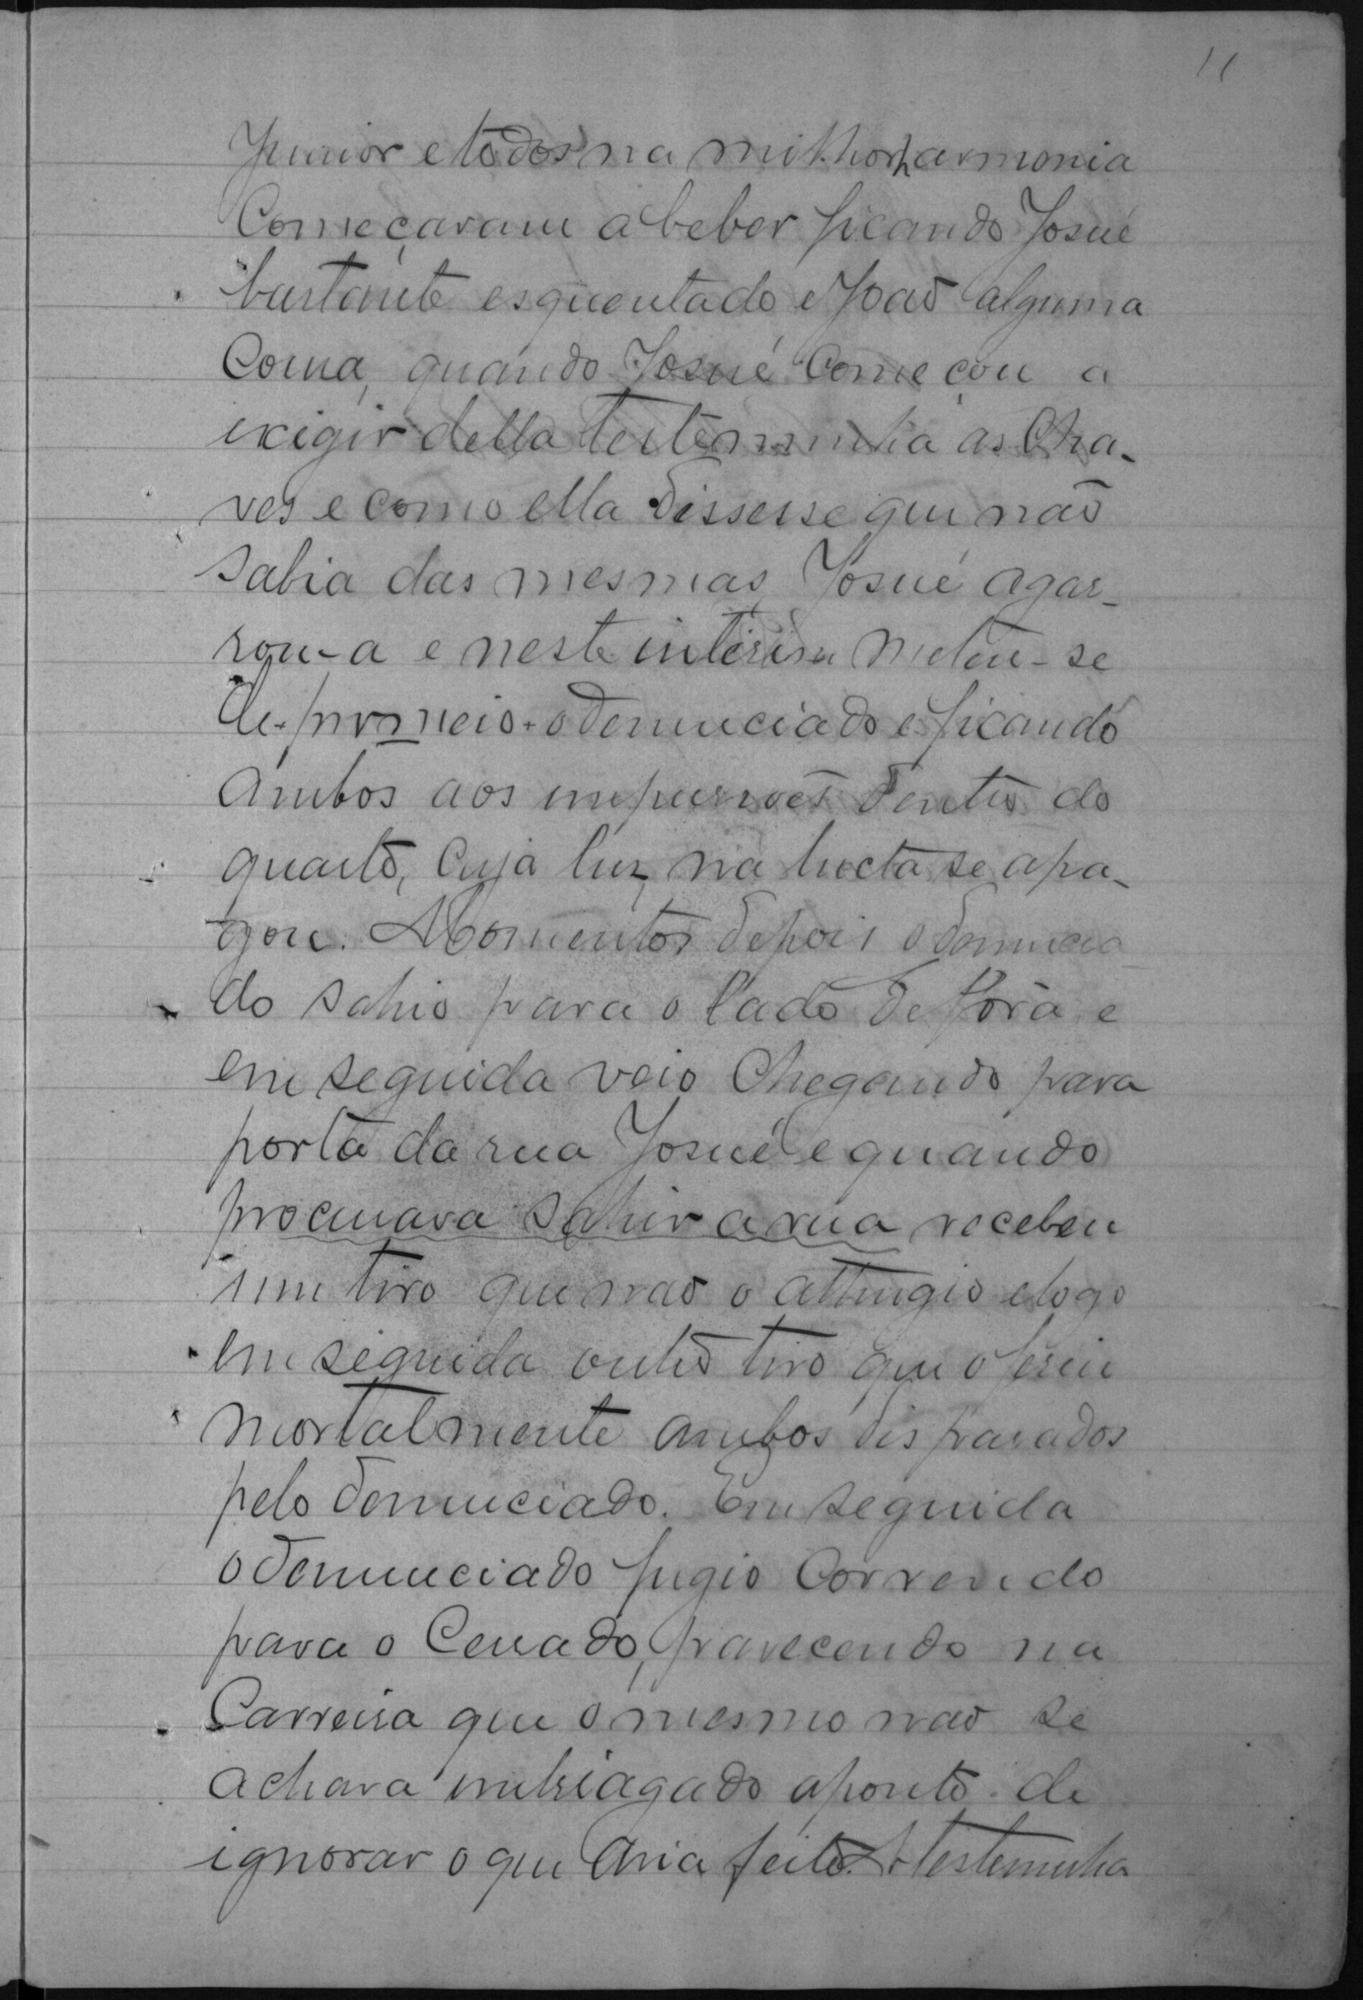 11
Junior e todos na milhor harmonia
Começaram a beber ficando Josué
bastante esquentado e João alguma
Cousa, quando Josué Começou a
exigir della testemunha as Cha-
ves e como ella dissesse que não
sabia das mesmas, Josué agar-
rou-a e neste interim meteu-se
de-promeio-o denunciado e ficando
ambos aos impurrões dentro do
quarto, Cuja luz, na lucta se apa-
gou. Momentos depois o denuncia
do sahio para o lado de fóra e
em seguida veio Chegando para
porta da rua Josué e quando
procurava sahir a rua recebeu
um tiro que não o attingio e logo
em seguida outro tiro que o feriu
mortalmente ambos disparados
pelo denunciado. Em seguida
o denunciado fugio Correndo
para o Cerrado, parecendo na
Carreira que o mesmo não se
achava imbriagado aponto de
ignorar o que avia feito. A testemunha